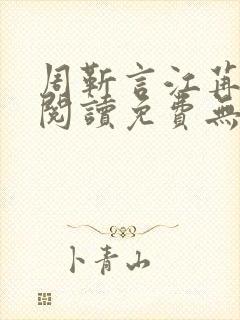 周靳言江苒
閱讀免費無
卜青山